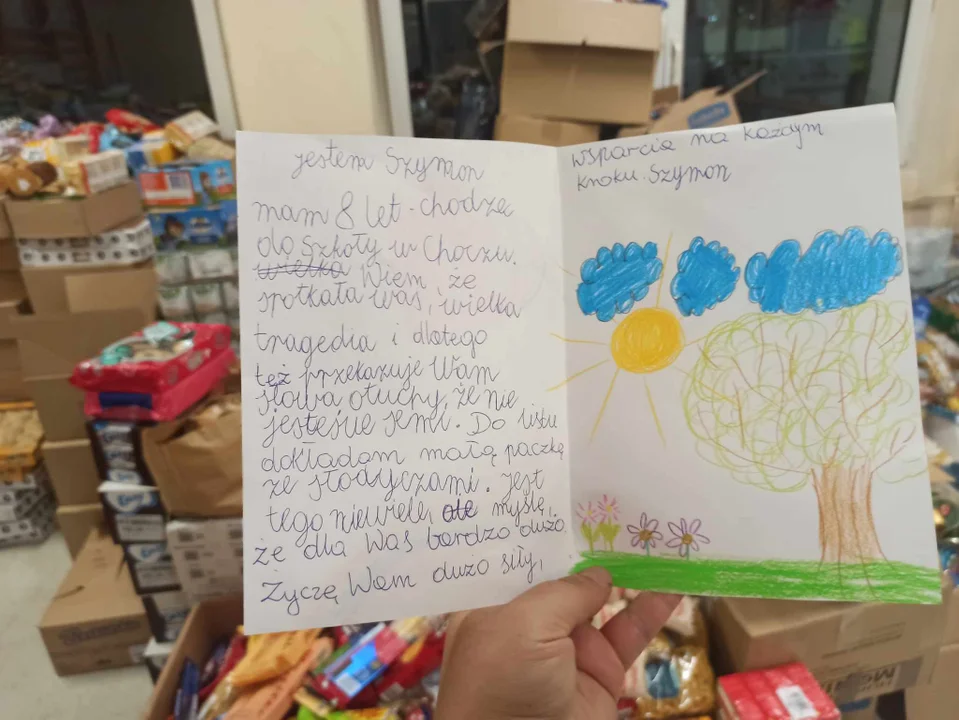 jestem Szymon
mam 8 let. chodzę
do Szkoły w Choczu.
wielka Wiem, że
spotkała was, wielka
tragedia i dlatego
też przekazuje Wam
słowa otuchy, że nie
jesteście sami. Do listu
dokładam małą paczkę
ze słodyczami. Jest
tego niewiele, ale myślę,
że dla Was bardzo dużo.
Życzę Wam dużo siły,
wsparcia na każdym
kroku. Szymon